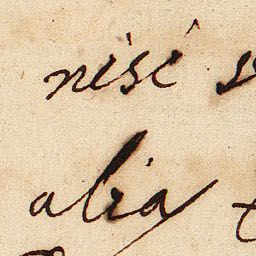 nisi
alia